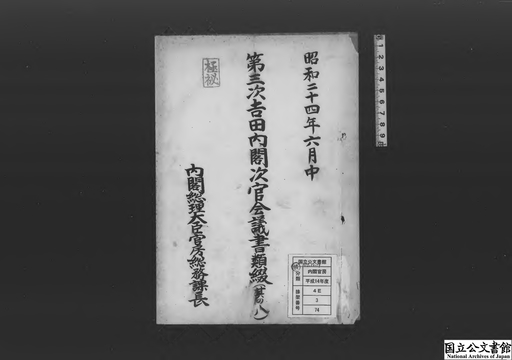 昭和二十四年六月中
第三次吉田内閣次官会議書類綴(其の八)
極秘
内閣総理大臣官房総務課長
国立公文書館
分類
内閣官房
平成14年度
排架番号
4E
3
74
国立公文書館
National Archives of Japan